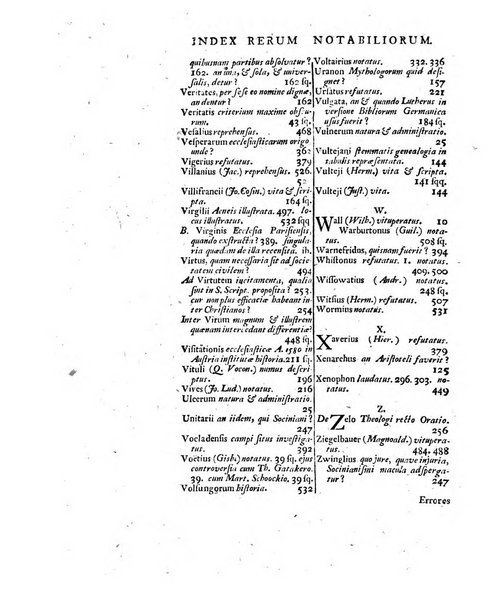 INDEX RERUM NOTABILIORUM.
quibusnam partibus absolvatur?
162. an una, & sola, & univer-
salis, detur? 162 sq.
Veritates, per se se eo nomine dignæ,
an dentur? 162
Veritatis criterium maxime obscu-
rum. 43 sq.
Vesalius reprehensus. 468
Vesperarum ecclesiasticarum origo
unde? 362
Vigerius refutatus. 379
Villanius (Jac.) reprehensus. 526.
52
Villifranci (Jo. Cosm.) vita & scri-
pta. 164 sq.
Virgilii Aeneis illustrata. 497. lo-
cus illustratus. 532 sqq
B. Virginis Ecclesia Parisiensis,
quando exstructa? 389. singula-
ria quædam de illa recensita. ib.
Virtus, quam necessaria sit ad socie-
tatem civilem? 494
Ad Virtutem incitamenta, qualia
sint in S. Script. proposita? 253.
cur non plus efficaciæ habeant in-
ter Christianos? 254
Inter Virum magnum & illustrem
quænam intercedat differentia?
448 sq.
Visitationis ecclesiasticæ A. 1580 in
Austria institutæ historia. 211 sq.
Vituli (Q. Vocon.) numus descri-
ptus. 196
Vives (Jo. Lud.) notatus. 216
Ulcerum natura & administratio.
25
Unitarii an iidem, qui Sociniani?
247
Vocladensis campi situs investiga-
tus. 392
Voetius (Gisb.) notatus. 39 sq. ejus
controversia cum Th. Gatakero.
39. cum Mart. Schoockio. 39 sq.
Volsungorum historia. 532
Voltairius notatus. 332. 336
Uranon Mythologorum quid desi-
gnet? 157
Ursatus refutatus. 221
Vulgata, an & quando Lutherus in
versione Bibliorum Germanica
usus fuerit? 184 sq.
Vulnerum natura & administratio.
25
Vultejani stemmatis genealogia in
tabulis repræsentata. 144
Vulteji (Herm.) vita & scripta.
141 sqq.
Vulteji (Just.) vita. 144
W.
Wall (Wilh.) vituperatus. 10
Warburtonus (Guil.) nota-
tus. 508 sq.
Warnefridus, quisnam fuerit? 394
Whistonus refutatus. 1. notatus.
409. 500
Wissowatius (Andr.) notatus.
248 sq.
Witsius (Herm.) refutatus. 507
Wormius notatus. 531
X.
Xaverius (Hier.) refutatus.
379
Xenarchus an Aristoteli faverit?
125
Xenophon laudatus. 296. 303. no-
tatus. 449
Z.
De Zelo Theologi recto Oratio.
256
Ziegelbauer (Magnoald.) vitupera-
tus. 484. 488
Zwinglius quo jure, quave injuria,
Socinianismi macula adsperga-
tur? 247
Errores